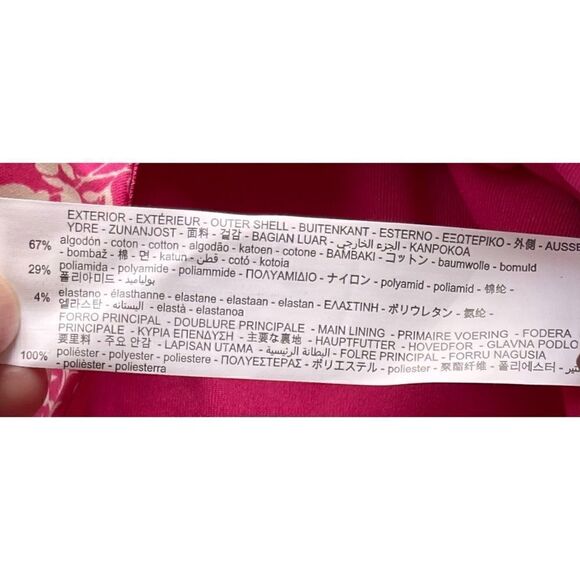 EXTERIOR - EXTÉRIEUR - OUTER SHELL - BUITENKANT - ESTERNO - ΕΞΩΤΕΡΙΚΟ - 外側 - AUSSE
YDRE - ZUNANJOST - 面料 - 겉감 - BAGIAN LUAR - الجزء الخارجي - KANPOKOA
67% algodón - coton - cotton - algodão - katoen - cotone - ΒΑΜΒΑΚΙ - コットン - baumwolle - bomuld
- bombaž - 棉 - 면 - katun - قطن - cotó - kotoia
29% poliamida - polyamide - poliammide - ΠΟΛΥΑΜΙΔΙΟ - ナイロン - polyamid - poliamid - 锦纶
- 폴리아미드 - بولياميد
4% elastano - élasthanne - elastane - elastaan - elastan - ΕΛΑΣΤΙΝΗ - ポリウレタン - 氨纶
- 엘라스탄 - الیستانه - elastà - elastanoa
FORRO PRINCIPAL - DOUBLURE PRINCIPALE - MAIN LINING - PRIMAIRE VOERING - FODERA
PRINCIPALE - ΚΥΡΙΑ ΕΠΕΝΔΥΣΗ - 主要な裏地 - HAUPTFUTTER - HOVEDFOR - GLAVNA PODLO
要里料 - 주요 안감 - LAPISAN UTAMA - البطانة الرئيسية - FOLRE PRINCIPAL - FORRU NAGUSIA
100% poliéster - polyester - poliestere - ΠΟΛΥΕΣΤΕΡΑΣ - ポリエステル - poliester - 聚酯纤维 - 폴리에스터 -
- polièster - poliesterra